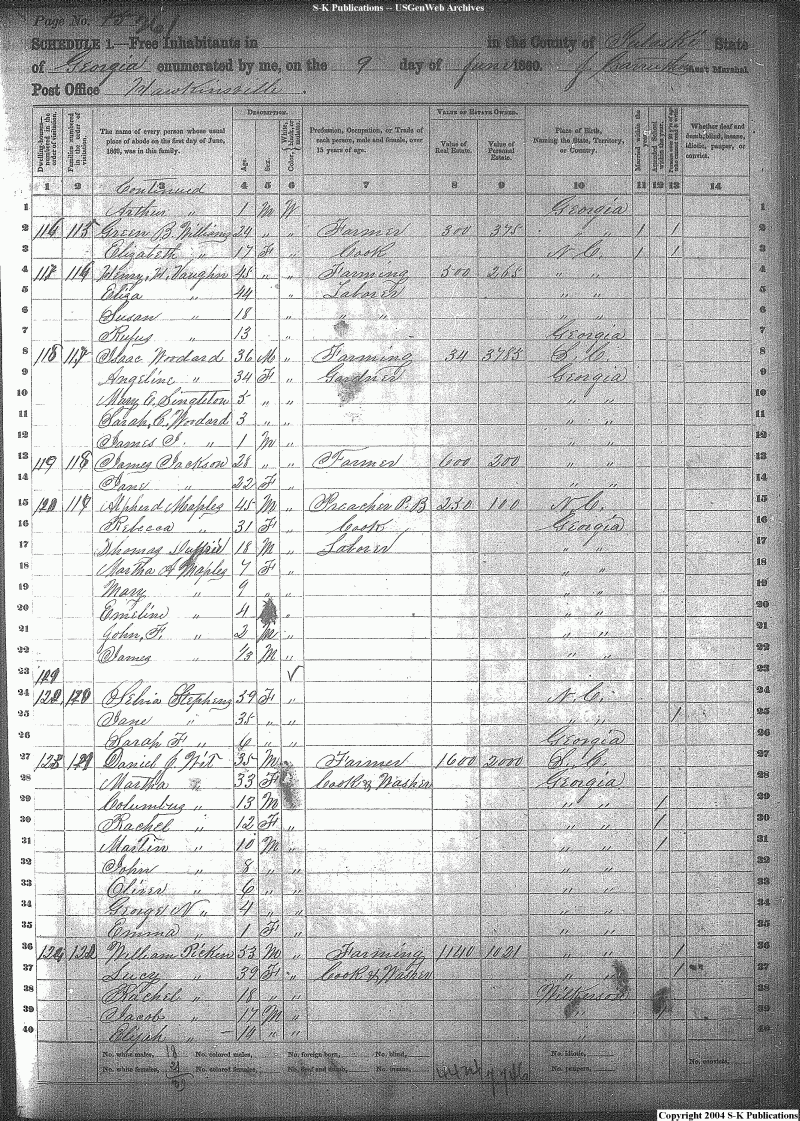 S-K Publications -- USGenWeb Archives
Page No. 15 261
SCHEDULE 1.—Free Inhabitants in in the County of Pulaski State
of Georgia enumerated by me, on the 9 day of June 1860. J. Ass't Marshal.
Post Office Hawkinsville
Dwelling-houses—numbered in the order of visitation.
Families numbered in the order of visitation.
The name of every person whose usual place of abode on the first day of June, 1860, was in this family.
DESCRIPTION.
Age.
Sex.
Color, White, black, or mulatto.
Profession, Occupation, or Trade of each person, male and female, over 15 years of age.
VALUE OF ESTATE OWNED.
Value of Real Estate.
Value of Personal Estate.
Place of Birth, Naming the State, Territory, or Country.
Married within the year.
Attended School within the year.
Whether deaf and dumb, blind, insane, idiotic, pauper, or convict.
1 2 3 4 5 6 7 8 9 10 11 12 13 14
Continued
1 Arthur " 1 M W Georgia 1
2 116 115 Green B Williams 24 " " Farmer 300 375 " " 1 1 2
3 Elizabeth " 17 F " Cook N.C. 1 1 3
4 117 116 Henry, H. Vaughn 45 " " Farming 500 265 " " 4
5 Eliza " 44 " Laborer " " 5
6 Susan " 18 " " " " " 6
7 Rufus " 13 " Georgia 7
8 118 117 Isaac Wordard 36 M " Farming 34 3785 S.C. 8
9 Angeline " 34 F " Gardner Georgia 9
10 Mary C, Singleton 5 " " " " 10
11 Sarah, C, Wordard 3 " " " " 11
12 James J. " 1 M " " " 12
13 119 118 James Jackson 28 " " Farmer 600 200 " " 13
14 Jane " 22 F " " " 14
15 120 119 Alpherd Maples 45 M " Preacher P.B 250 100 N.C. 15
16 Rebecca " 31 F " Cook Georgia 16
17 Thomas 18 M " Laborer " " 17
18 Martha A Maples 7 F " " " 18
19 Mary " 9 " " " " 19
20 Emeline " 4 " " " 20
21 John, F. " 2 M " " " 21
22 James " 1/3 M " " " 22
23 129 ✓ 23
24 122 120 Stephens 59 F " N.C. 24
25 Jane " 35 " " " " 1 25
26 Sarah F " 6 " " Georgia 26
27 123 121 Daniel 35 M " Farmer 1600 2000 S.C. 27
28 Martha " 33 F Cook & Washer Georgia 28
29 Columbus " 13 M " " 1 29
30 Rachel " 12 F " " " 1 30
31 Martin " 10 M " " " 1 31
32 John " 8 " " " " 32
33 Oliver " 6 " " " " 33
34 George N " 4 " " " " 34
35 Emma " 1 F " " " 35
36 124 122 William Picken 53 M " Farming 1140 1021 " " 1 36
37 Lucy " 39 F " Cook & Washer " " 1 37
38 Rachel " 18 " " Wilkerson 38
39 Jacob " 17 M " " 39
40 Elijah " 14 " " " " 40
No. white males, 19 No. colored males, No. foreign born, No. blind, No. idiotic, No. convicts,
No. white females, 21 No. colored females, No. deaf and dumb, No. insane, No. paupers,
Copyright 2004 S-K Publications